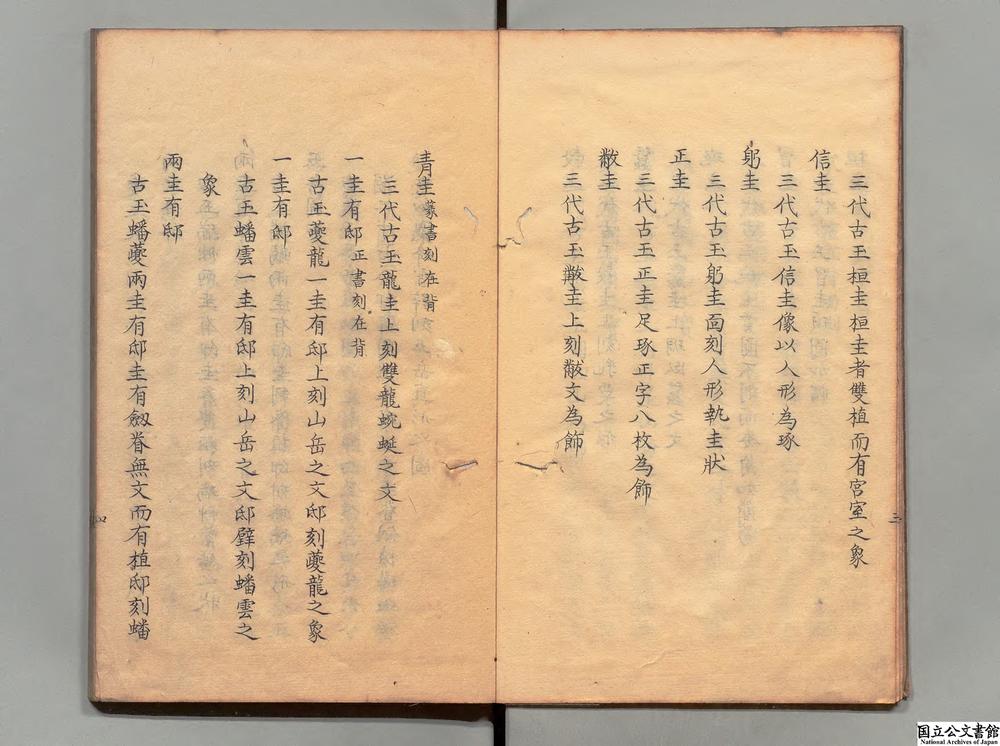 三代古玉桓圭桓圭者雙植而有宮室之象
信圭
三代古玉信圭像以人形為琢
躬圭
三代古玉躬圭面刻人形執圭狀
正圭
三代古玉正圭足琢正字八枚為飾
黻圭
三代古玉黻圭上刻黻文為飾
三
青圭篆書刻在背
三代古玉龍圭上刻雙龍蜿蜒之文
一圭有邸正書刻在背
古玉夔龍一圭有邸上刻山岳之文邸刻夔龍之象
一圭有邸
古玉蟠雲一圭有邸上刻山岳之文邸璧刻蟠雲之
象
兩圭有邸
古玉蟠夔兩圭有邸圭有劔脊無文而有植邸刻蟠
四
国立公文書館
National Archives of Japan